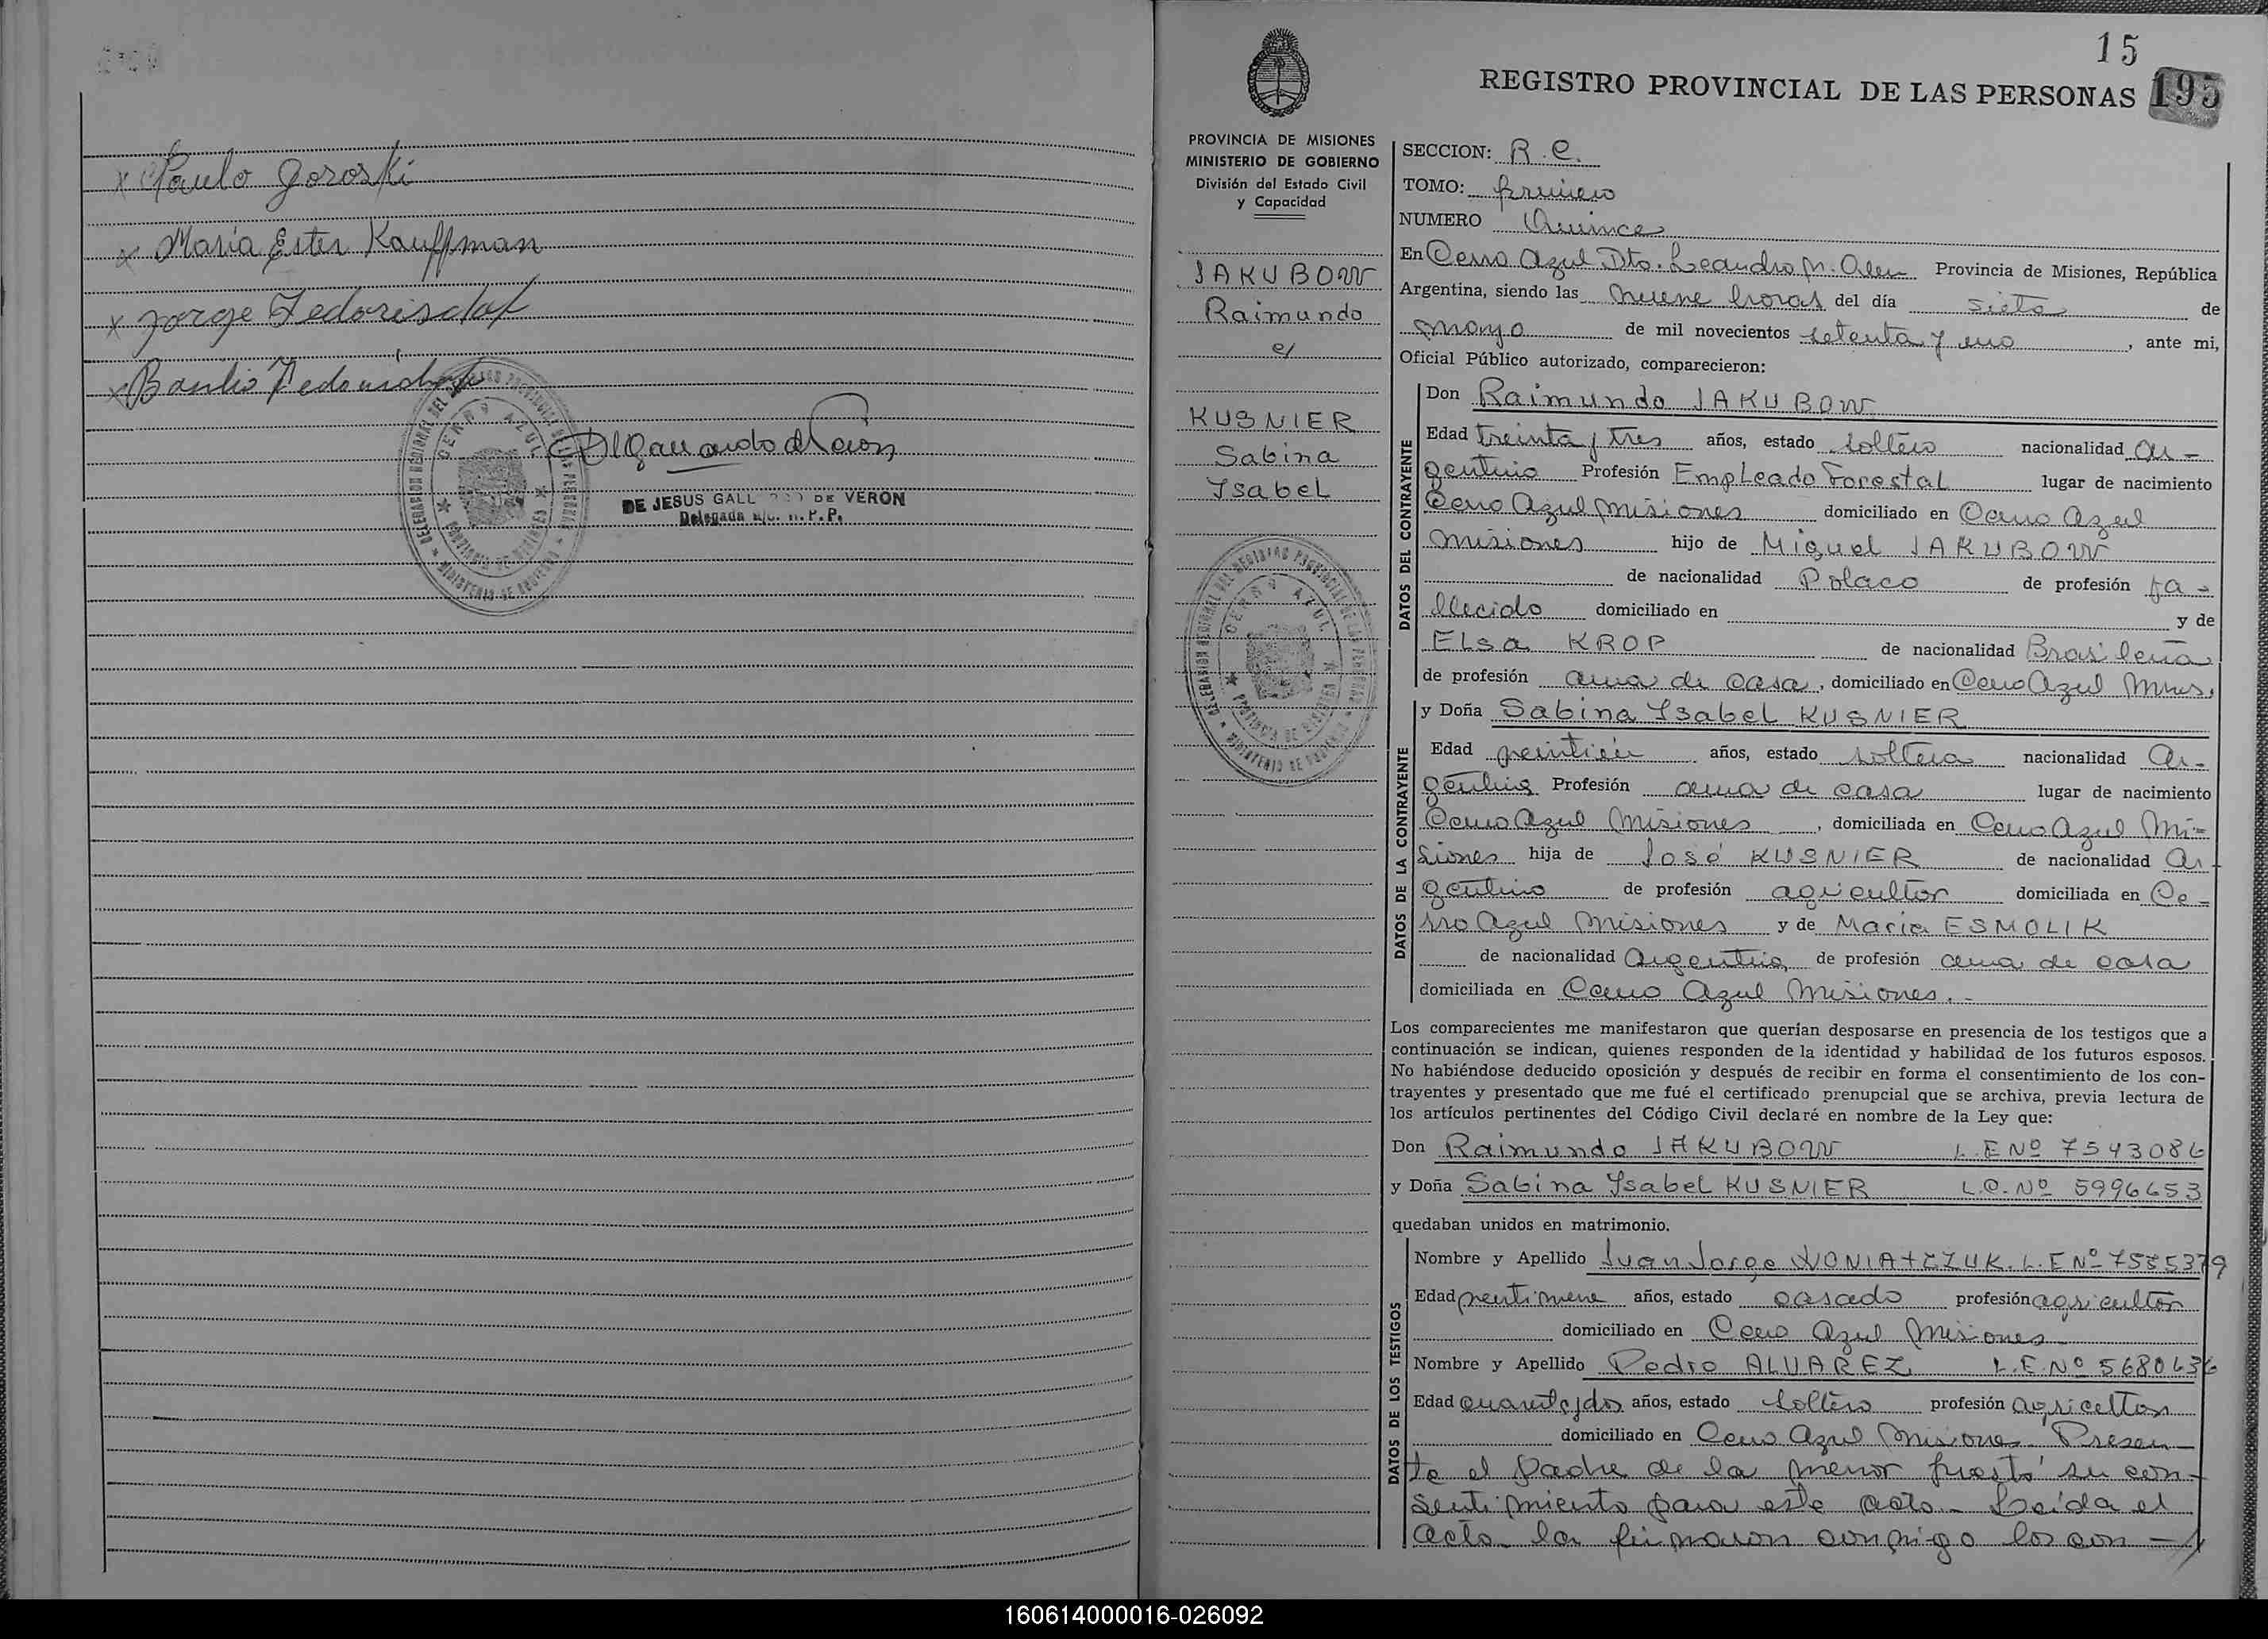 x Paulo Goroski
x María Ester Kauffman
x Jorge
x Basilio
DE JESUS GALL DE VERON
Delegada R.P.P.
DELEGACION REGIONAL DEL REGISTRO PROVINCIAL DE LAS PERSONAS
CERRO AZUL
PROVINCIA DE MISIONES
MINISTERIO DE GOBIERNO
15
REGISTRO PROVINCIAL DE LAS PERSONAS 195
PROVINCIA DE MISIONES
MINISTERIO DE GOBIERNO
División del Estado Civil
y Capacidad
JAKUBOW
Raimundo
e/
KUSNIER
Sabina
Ysabel
DELEGACION REGIONAL DEL REGISTRO PROVINCIAL DE LAS PERSONAS
CERRO AZUL
PROVINCIA DE MISIONES
MINISTERIO DE GOBIERNO
SECCION: R.C.
TOMO: primero
NUMERO Quince
En Cerro Azul Dto. Leandro N. Alem Provincia de Misiones, República
Argentina, siendo las nueve horas del día siete de
mayo de mil novecientos setenta y uno, ante mi,
Oficial Público autorizado, comparecieron:
DATOS DEL CONTRAYENTE
Don Raimundo JAKUBOW
Edad treinta y tres años, estado soltero nacionalidad Ar-
gentino Profesión Empleado Forestal lugar de nacimiento
Cerro Azul Misiones domiciliado en Cerro Azul
Misiones hijo de Miguel JAKUBOW
de nacionalidad Polaco de profesión fa-
llecido domiciliado en y de
ELSA KROP de nacionalidad Brasileña
de profesión ama de casa, domiciliado en Cerro Azul Mnes.
DATOS DE LA CONTRAYENTE
y Doña Sabina Ysabel KUSNIER
Edad veintiún años, estado soltera nacionalidad Ar-
gentina Profesión ama de casa lugar de nacimiento
Cerro Azul Misiones, domiciliada en Cerro Azul Mi-
siones hija de José KUSNIER de nacionalidad Ar-
gentino de profesión agricultor domiciliada en Ce-
rro Azul Misiones y de María ESMOLIK
de nacionalidad Argentina de profesión ama de casa
domiciliada en Cerro Azul Misiones.-
Los comparecientes me manifestaron que querían desposarse en presencia de los testigos que a
continuación se indican, quienes responden de la identidad y habilidad de los futuros esposos.
No habiéndose deducido oposición y después de recibir en forma el consentimiento de los con-
trayentes y presentado que me fué el certificado prenupcial que se archiva, previa lectura de
los artículos pertinentes del Código Civil declaré en nombre de la Ley que:
Don Raimundo JAKUBOW L.E Nº 7543086
y Doña Sabina Ysabel KUSNIER L.C. Nº 5996653
quedaban unidos en matrimonio.
DATOS DE LOS TESTIGOS
Nombre y Apellido Juan Jorge L.E Nº 7585379
Edad veintinueve años, estado casado profesión agricultor
domiciliado en Cerro Azul Misiones
Nombre y Apellido Pedro ALVAREZ L.E. Nº 5680636
Edad cuarenta y dos años, estado soltero profesión agricultor
domiciliado en Cerro Azul Misiones. Presen-
te el padre de la menor prestó su con-
sentimiento para este acto.- Leída el
acta la firmaron conmigo los con-//
160614000016-026092